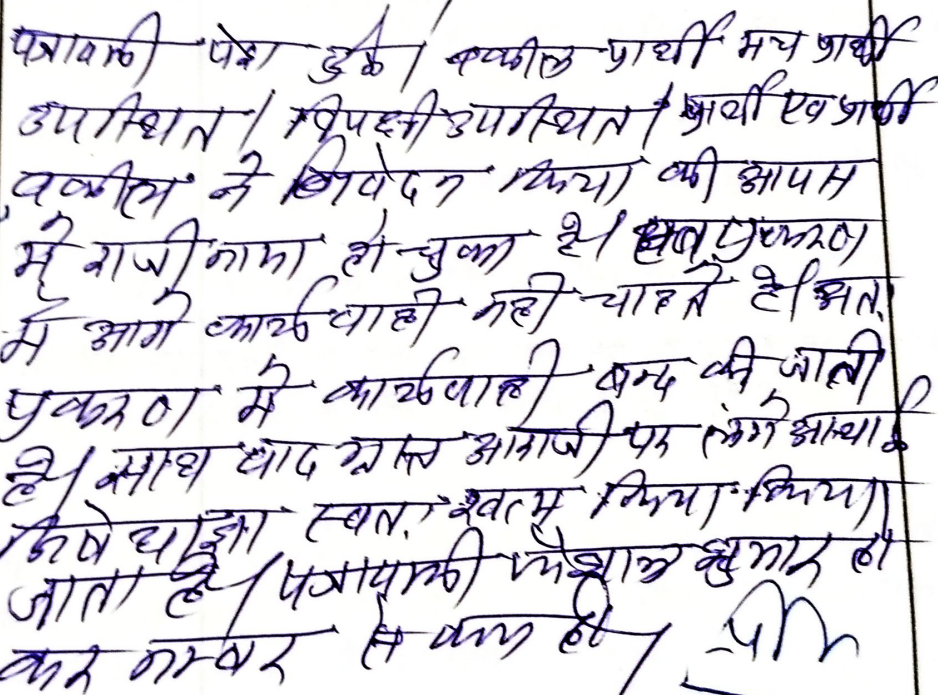 पत्रावली पेश हुई। वकील प्रार्थी मय प्रार्थी
उपस्थित। विपक्षी उपस्थित। प्रार्थी एव प्रार्थी
वकील ने निवेदन किया की आपस
में राजीनामा हो चुका है। प्रकरण
में आगे कार्यवाही नही चाहते है। अत:
प्रकरण में कार्यवाही बन्द की जाती
है। साथ वाद ग्रस्त आराजी पर लगे अस्थाई
निषेधाज्ञा स्वत: खत्म किया किया
जाता है। पत्रावली फैशल शुमार हो
कर नम्बर से कम हो।